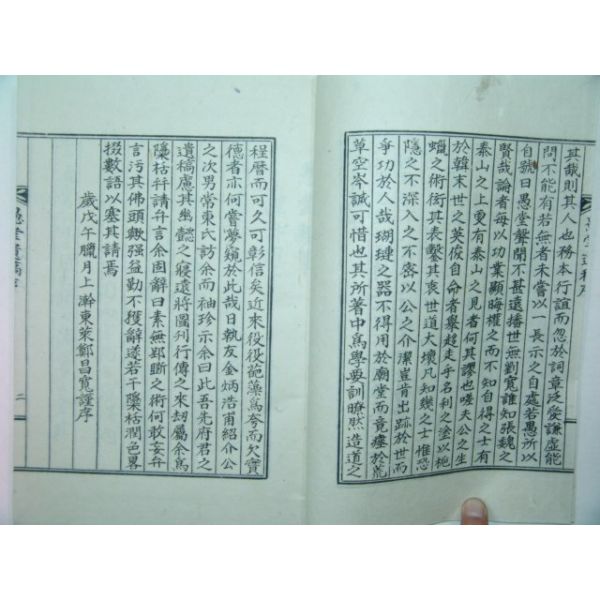 愚堂遺稿序
其哉則其人也務本行誼而忽於詞章泛愛謙虛能
問不能有若無者未嘗以一長示之自處若愚所以
自號曰愚堂聲聞不甚遠播世無劉寬誰知張魏之
賢哉論者每以功業顯晦權之而不知自得之士有
泰山之上更有泰山之見者何其謬也嗟夫公之生
於韓末世之英俊自命者舉趨走乎名利之塗以梔
蠟之術衒其表鑿其衷世道大壞凡知幾之士惟恐
隱之不深入之不密以公之介潔豈肯出跡於世而
爭功於人哉瑚璉之器不得用於廟堂而竟塵於荒
草空岑誠可惜也其所著中爲學要訓瞭然造道之
程曆而可久可彰信矣近來役役葩藻爲夸而欠實
德者亦何嘗夢窺於此哉日執友金炳浩甫紹介公
之次男常東氏訪余而袖珍示余曰此吾先府君之
遺稿慮其幾懿之寢遠將圖刋行傳之來刼屬余爲
檃枯幷請弁言余固辭曰素無郢斲之術何敢妄弁
言污其佛頭歟强益勤不獲辭遂若干檃枯潤色畧
掇數語以塞其請焉
歲戊午臘月上澣東萊鄭昌寬謹序
愚堂遺稿序
二